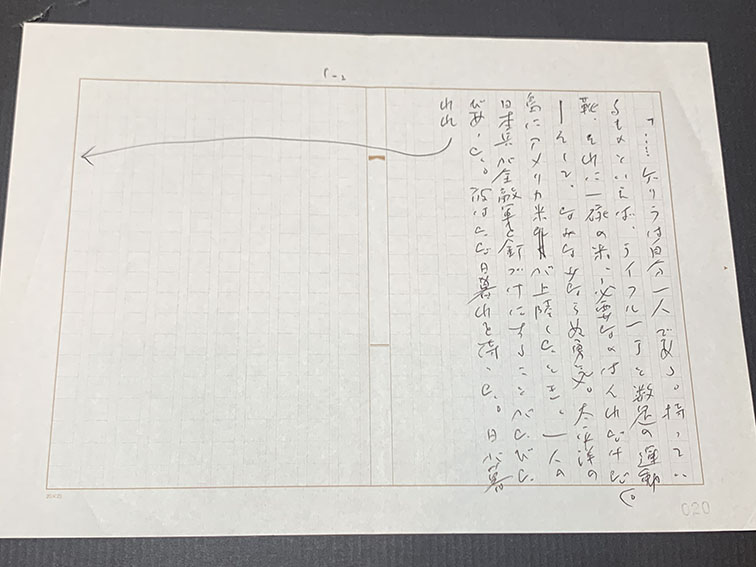 「……ゲリラは自分一人である。持ってい
るものといえば、ライフル一丁と数足の運動
靴、それに一袋の米、必要なのはそれだけだ。
ーそして、なみなみならぬ勇気。太平洋の
島にアメリカ米が上陸したとき、一人の
日本兵が全敵軍を釘づけにすることがたびたび
であった。彼はただ日暮れを待った。日が暮
れれ
020